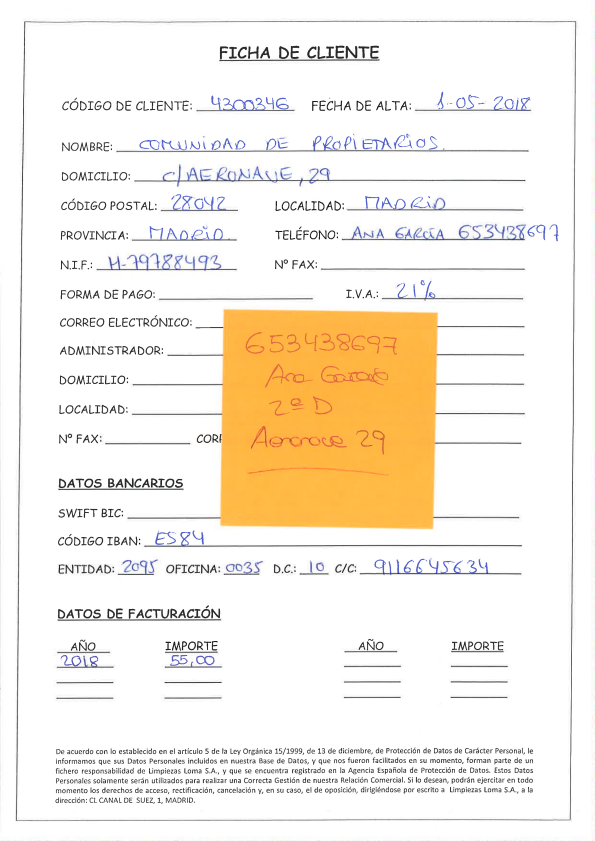 FICHA DE CLIENTE
CÓDIGO DE CLIENTE: 4300346 FECHA DE ALTA: 1-05-2018
NOMBRE: COMUNIDAD DE PROPIETARIOS.
DOMICILIO: C/AERONAVE, 29
CÓDIGO POSTAL: 28042 LOCALIDAD: MADRID
PROVINCIA: MADRID. TELÉFONO: ANA GARCÍA 653438697
N.I.F.: H-79788493 Nº FAX:
FORMA DE PAGO: I.V.A.: 21%
CORREO ELECTRÓNICO:
ADMINISTRADOR:
DOMICILIO:
LOCALIDAD:
Nº FAX: CORR
653438697
Ana García
2º D
Aeronave 29
DATOS BANCARIOS
SWIFT BIC:
CÓDIGO IBAN: ES84
ENTIDAD: 2095 OFICINA: 0035 D.C.: 10 C/C: 9116645634
DATOS DE FACTURACIÓN
AÑO IMPORTE AÑO IMPORTE
2018 55,00
De acuerdo con lo establecido en el artículo 5 de la Ley Orgánica 15/1999, de 13 de diciembre, de Protección de Datos de Carácter Personal, le
informamos que sus Datos Personales incluidos en nuestra Base de Datos, y que nos fueron facilitados en su momento, forman parte de un
fichero responsabilidad de Limpiezas Loma S.A., y que se encuentra registrado en la Agencia Española de Protección de Datos. Estos Datos
Personales solamente serán utilizados para realizar una Correcta Gestión de nuestra Relación Comercial. Si lo desean, podrán ejercitar en todo
momento los derechos de acceso, rectificación, cancelación y, en su caso, el de oposición, dirigiéndose por escrito a Limpiezas Loma S.A., a la
dirección: CL CANAL DE SUEZ, 1, MADRID.